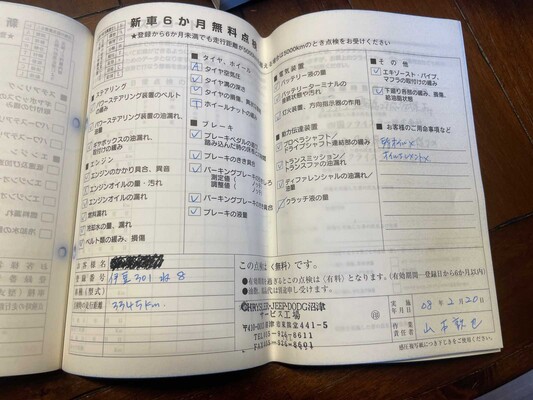 新車6か月無料点検
★登録から6か月未満でも走行距離が5000km
は5000kmのとき点検をお受けください
■ ステアリング
パワーステアリング装置のベルト
の緩み
パワーステアリング装置の油漏れ、
油量
ギヤボックスの油漏れ、
取付けの緩み
■ エンジン
エンジンのかかり具合、異音
エンジンオイルの量・汚れ
エンジンオイルの漏れ
燃料漏れ
冷却水の量、漏れ
ベルト類の緩み、損傷
■ タイヤ、ホイール
A タイヤ空気圧
タイヤ溝の深さ
タイヤの損傷、異状
T ホイールナットの緩み
■ ブレーキ
ブレーキペダルの遊び、
踏み込んだ時の床板と
ブレーキのきき具合
測定値(
調整値(
ノッチ)
ノッチ)
パーキングブレーキのきき具合
ブレーキの液量
■ 電気装置
バッテリー液の量
バッテリーターミナルの
接続状態や汚れ
灯火装置、方向指示器の作用
■ 動力伝達装置
プロペラシャフト/
ドライブシャフト連結部の緩み
トランスミッション/
トランスファの油漏れ
ディファレンシャルの油漏れ/
油量
クラッチ液の量
■ その他
エキゾースト・パイプ、
マフラの取付けの緩み
下廻り各部の緩み、損傷、
給油脂状態
■ お客様のご用命事項など
お客様名
登録番号 伊豆 301 ね 8
車種(型式)
点検時の走行距離 3345km
この点検は〈無料〉です。
●有効期間を過ぎるとこの点検は〈有料〉となります。(有効期間―登録日から6か月以内)
●油脂、部品代は別途申し受けます。
CHRYSLER・JEEP・DODG沼津
サービス工場
市東熊堂441-5
実施年月日 08年 2月20日
作業責任者
感圧複写紙につき下じきをご使用ください。